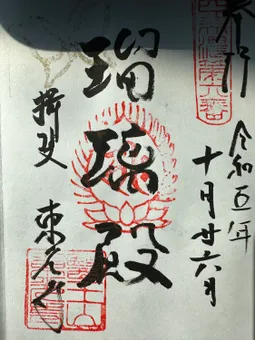 奉拝
令和五年
十月廿六月
瑠璃殿
揖斐
東光寺